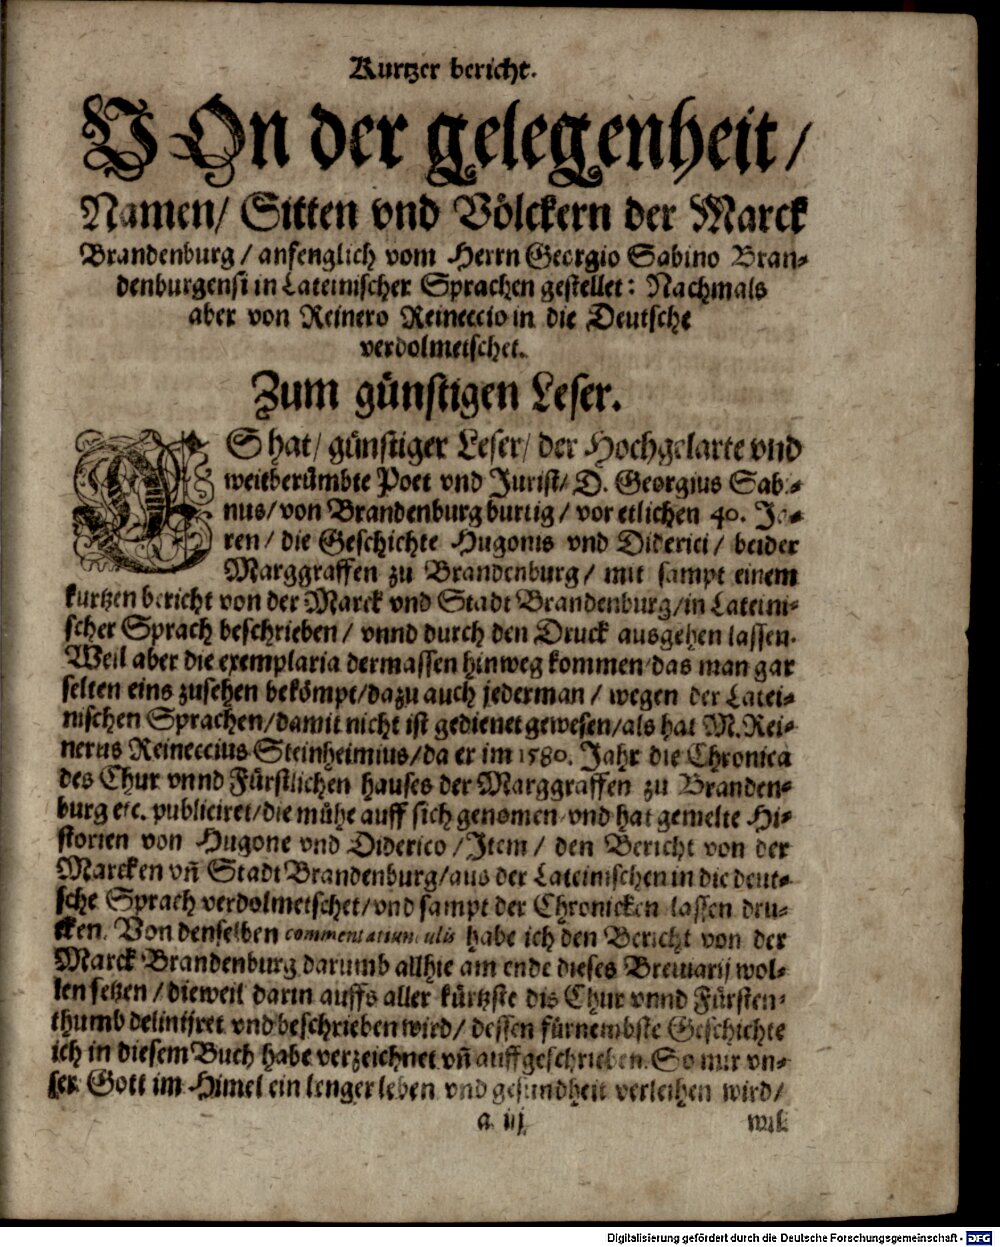 Kurtzer bericht.
VOn der gelegenheit/
Namen/ Sitten vnd Völckern der Marck
Brandenburg/ anfenglich vom Herrn Georgio Sabino Bran-
denburgensi in Lateinischer Sprachen gestellet: Nachmals
aber von Reinero Reineccio in die Deutsche
verdolmetschet.
Zum günstigen Leser.
ES hat/ günstiger Leser/ der Hochgelarte vnd
weitberümbte Poet vnd Jurist/ D. Georgius Sabi-
nus/ von Brandenburg burtig/ vor etlichen 40. Ja-
ren/ die Geschichte Hugonis vnd Diderici/ beider
Marggraffen zu Brandenburg/ mit sampt einem
kurtzen bericht von der Marck vnd Stadt Brandenburg/ in Lateini-
scher Sprach beschrieben/ vnnd durch den Druck ausgehen lassen.
Weil aber die exemplaria dermassen hinweg kommen/ das man gar
selten eins zusehen bekömpt/ dazu auch jederman/ wegen der Latei-
nischen Sprachen/ damit nicht ist gedienet gewesen/ als hat M. Rei-
nerus Reineccius Steinheimius/ da er im 1580. Jahr die Chronica
des Chur vnnd Fürstlichen hauses der Marggraffen zu Branden-
burg etc. publiciret/ die mühe auff sich genomen/ vnd hat gemelte Hi-
storien von Hugone vnd Diderico/ Item/ den Bericht von der
Marcken vñ Stadt Brandenburg/ aus der Lateinischen in die deut-
sche Sprach verdolmetschet/ vnd sampt der Chronicken lassen dru-
cken. Von denselben habe ich den Bericht von der
Marck Brandenburg darumb allhie am ende dieses Breuiarij wol-
len setzen/ dieweil darin auffs aller kürtzste dis Chur vnnd Fürsten-
thumb delinijret vnd beschrieben wird/ dessen fürnembste Geschichte
ich in diesem Buch habe verzeichnet vñ auffgeschrieben. So mir vn-
ser Gott im Himel ein lenger leben vnd gesundheit verleihen wird/
a iij
wil
Digitalisierung gefördert durch die Deutsche Forschungsgemeinschaft - DFG